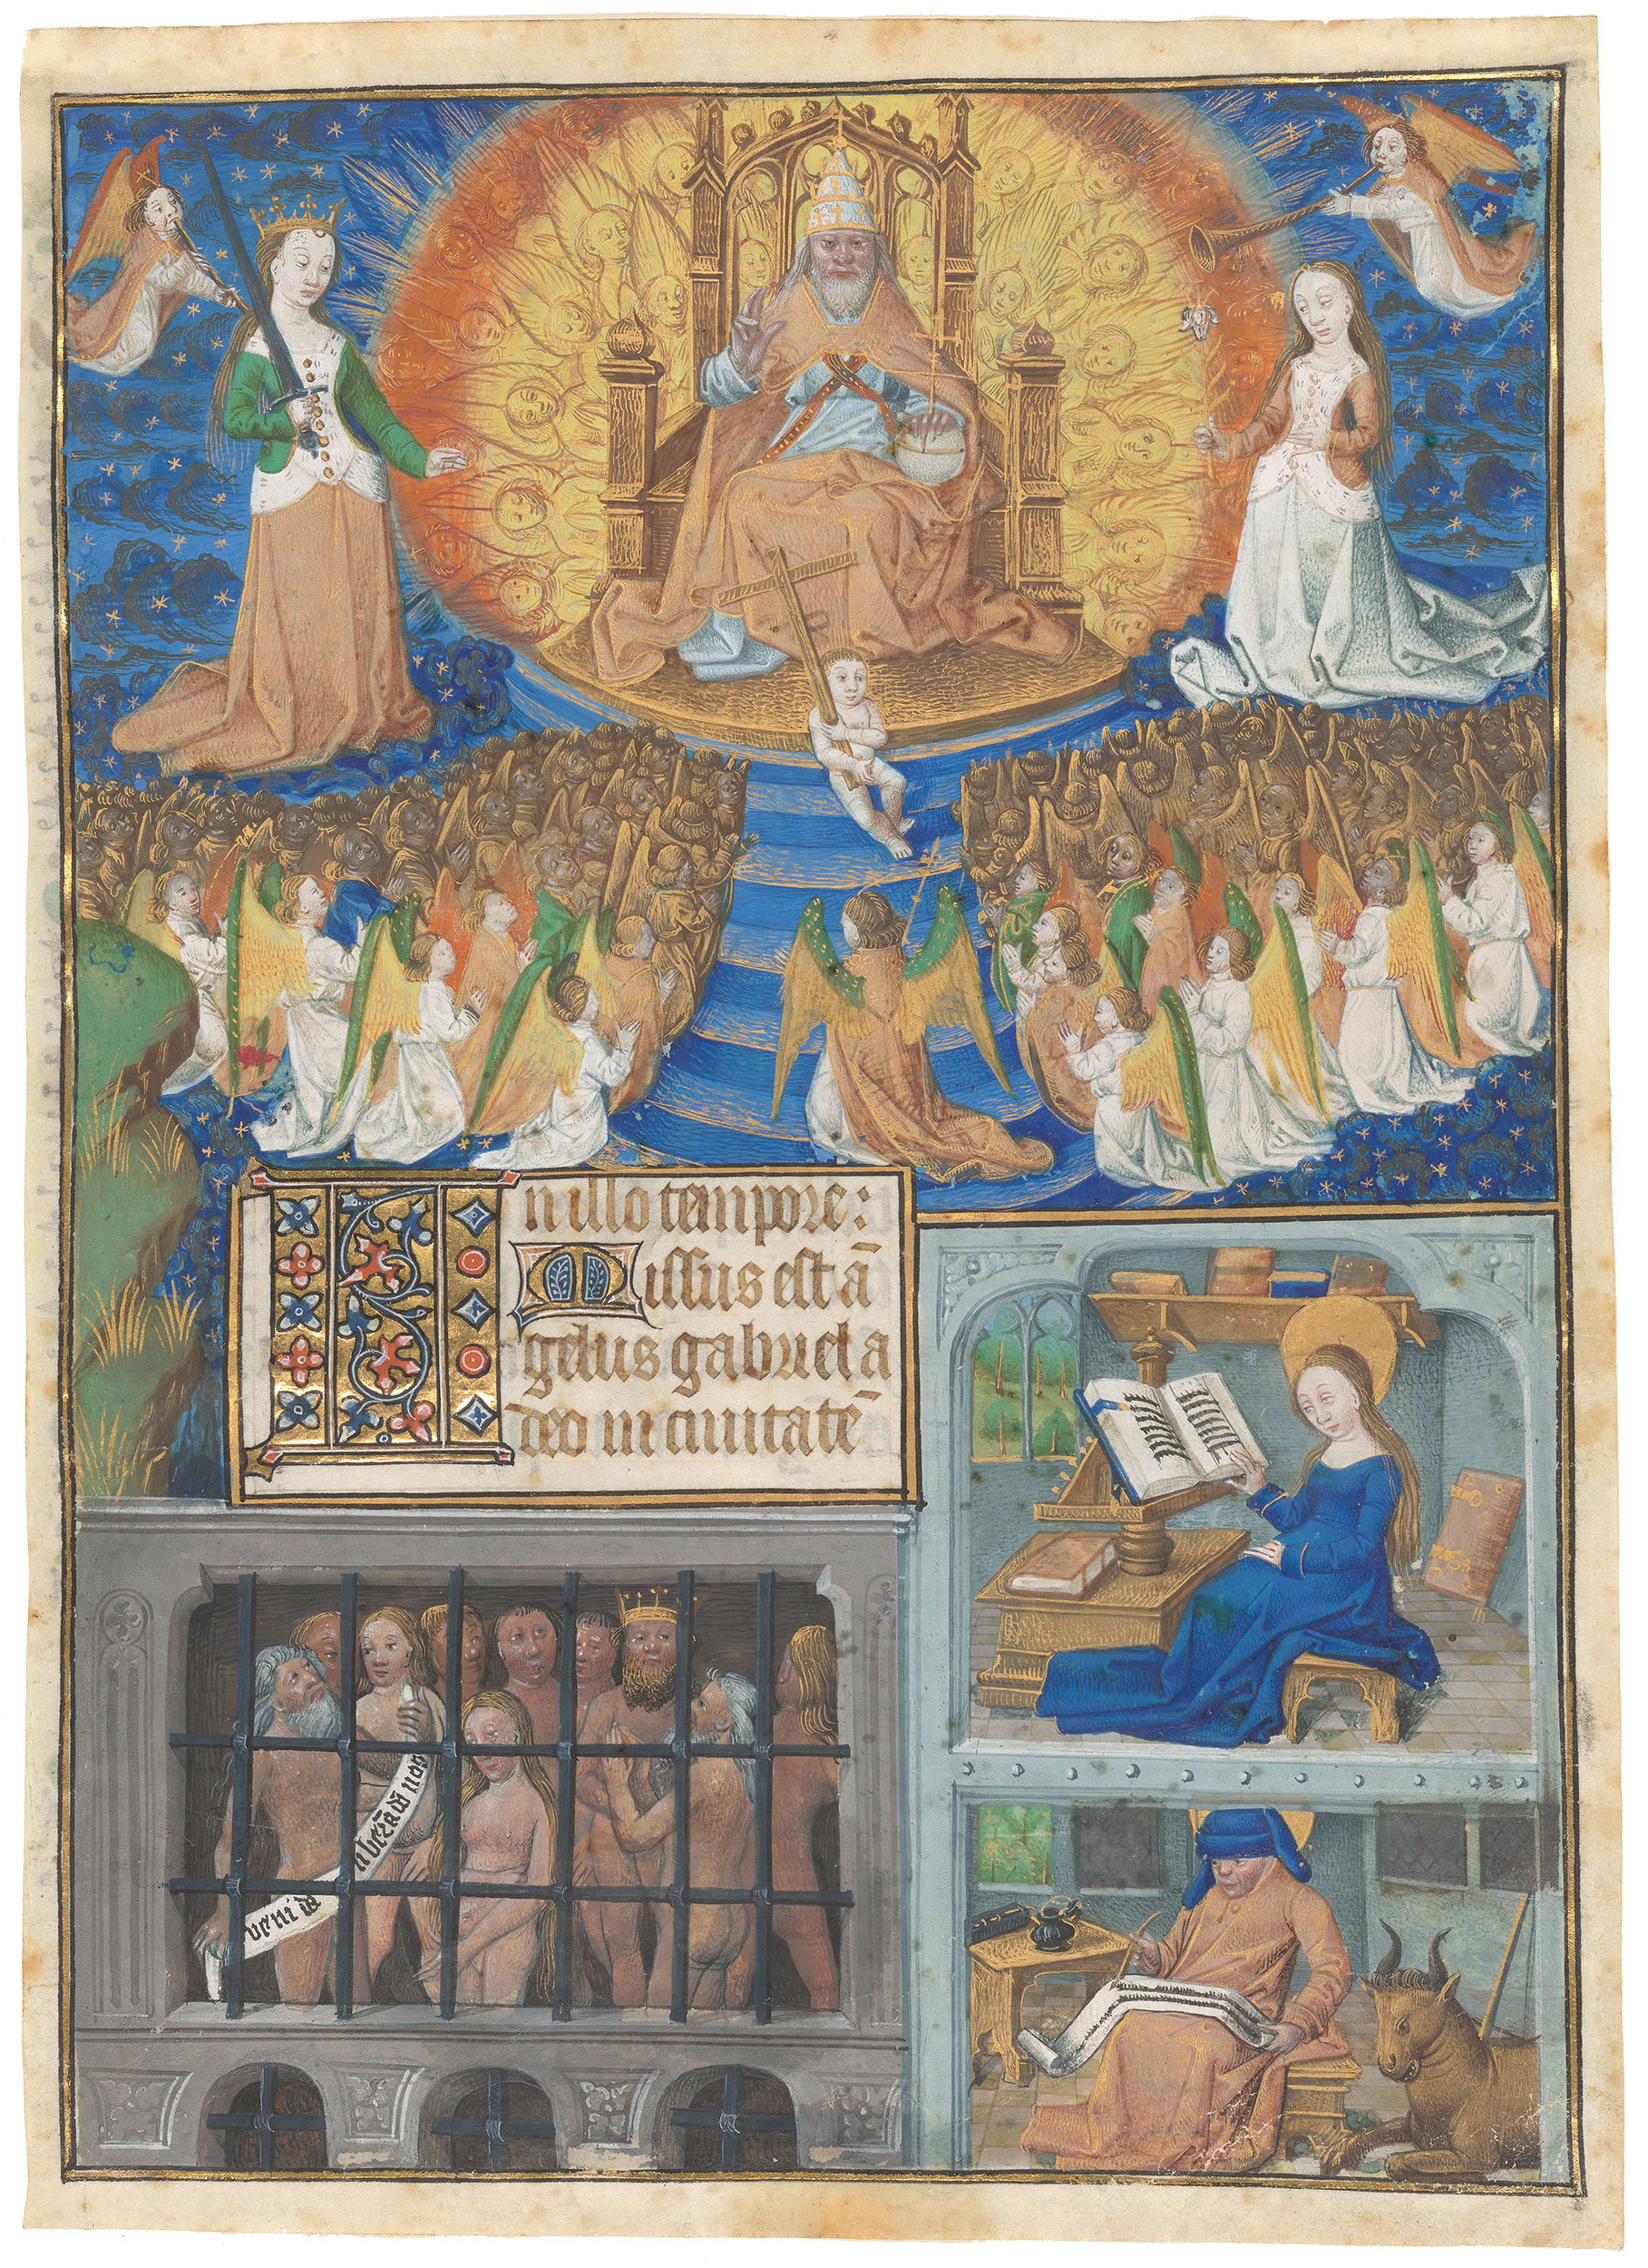 In illo tempore:
Missus est ā
gelus gabriel a
deo in ciuitatē
veni ad liberādū nos